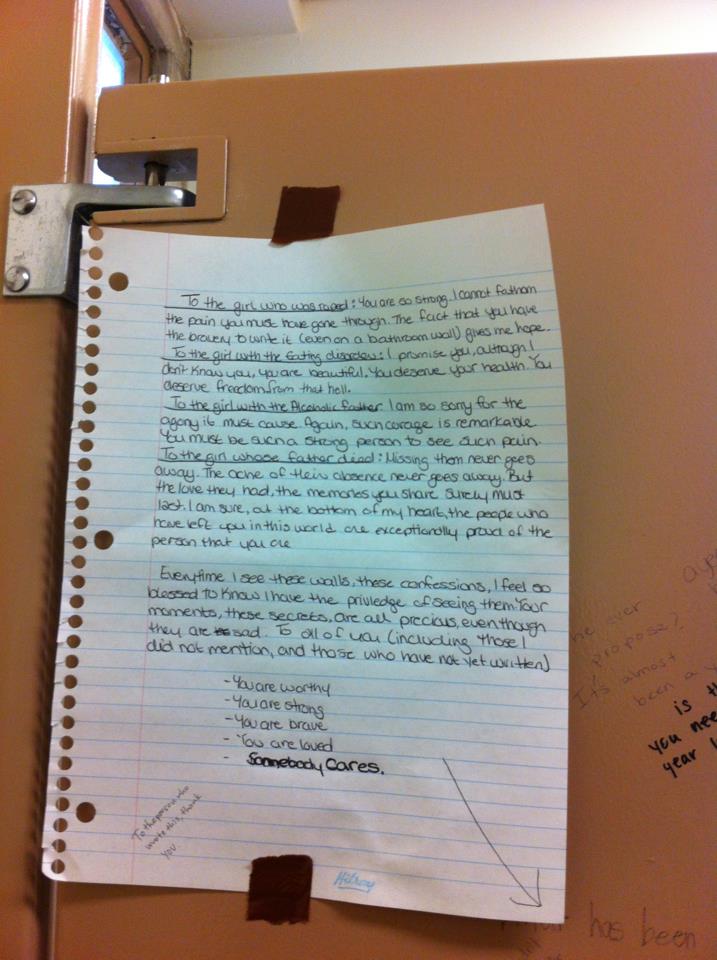 To the girl who was raped: You are so strong. I cannot fathom
the pain you must have gone through. The fact that you have
the bravery to write it (even on a bathroom wall) gives me hope.
To the girl with the Eating disorder: I promise you, although I
don't know you, you are beautiful. You deserve your health. You
deserve freedom from that hell.
To the girl with the Alcoholic father I am so sorry for the
agony it must cause. Again, such corage is remarkable
You must be such a strong person to see such pain.
To the girl whose father died: Missing them never goes
away. The ache of their absence never goes away. But
the love they had, the memories you share surely must
last. I am sure, at the bottom of my heart, the people who
have left you in this world are exceptionally proud of the
person that you are
Everytime I see these walls, these confessions, I feel so
blessed to know I have the priviledge of seeing them. Your
moments, these secrets, are all precious, even though
they are sad. To all of you (including those I
did not mention, and those who have not yet written)
- You are worthy
- You are strong
- You are brave
- You are loved
- Somebody Cares.
To the person who
wrote this, thank
you
Hilroy
he ever
propose?
It's almost
been a
is th
you nee
year
has been